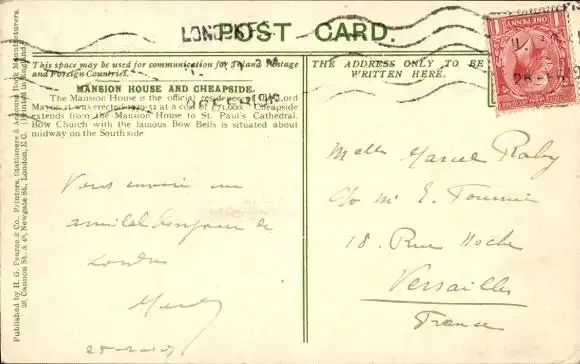 POST CARD.
LONDON
This space may be used for communication for Inland Postage
and Foreign Countries.
THE ADDRESS ONLY TO BE
WRITTEN HERE.
ONE PENNY
MANSION HOUSE AND CHEAPSIDE.
The Mansion House is the official residence of the Lord
Mayor, it was erected 1739-52 at a cost of £71,000. Cheapside
extends from the Mansion House to St. Paul's Cathedral.
Bow Church with the famous Bow Bells is situated about
midway on the South side
Vous envoie un
amical bonjour de
Londres
25-2-19
Marcel
c/o Mr E. Fournier
18. Rue Hoche
Versailles
France
Published by H. G. Pearce & Co., Printers, Stationers & Account Book Manufacturers,
Cannon St. & 48, Newgate St., London, E.C. (Printed in England)